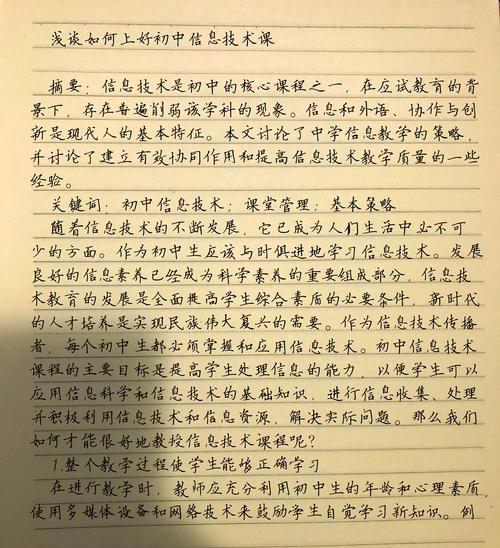 浅谈如何上好初中信息技术课
摘要：信息技术是初中的核心课程之一，在应试教育的背
景下，存在普遍削弱该学科的现象。信息和外语、协作与创
新是现代人的基本特征。本文讨论了中学信息教学的策略，
并讨论了建立有效协同作用和提高信息技术教学质量的一些
经验。
关键词：初中信息技术；课堂管理；基本策略
随着信息技术的不断发展，它已成为人们生活中必不可
少的方面。作为初中生应该与时俱进地学习信息技术。发展
良好的信息素养已经成为科学素养的重要组成部分，信息技
术教育的发展是全面提高学生综合素质的必要条件，新时代
的人才培养是实现民族伟大复兴的需要。作为信息技术传播
者，每个初中生都必须掌握和应用信息技术。初中信息技术
课程的主要目标是提高学生处理信息的能力，以便学生可以
应用信息科学和信息技术的基础知识，进行信息收集、处理
并积极利用信息技术和信息资源，解决实际问题。那么我们
如何才能很好地教授信息技术课程呢？
1.整个教学过程使学生能够正确学习
在进行教学时，教师应充分利用初中生的年龄和心理素质，
使用多媒体设备和网络技术来鼓励学生自觉学习新知识。例